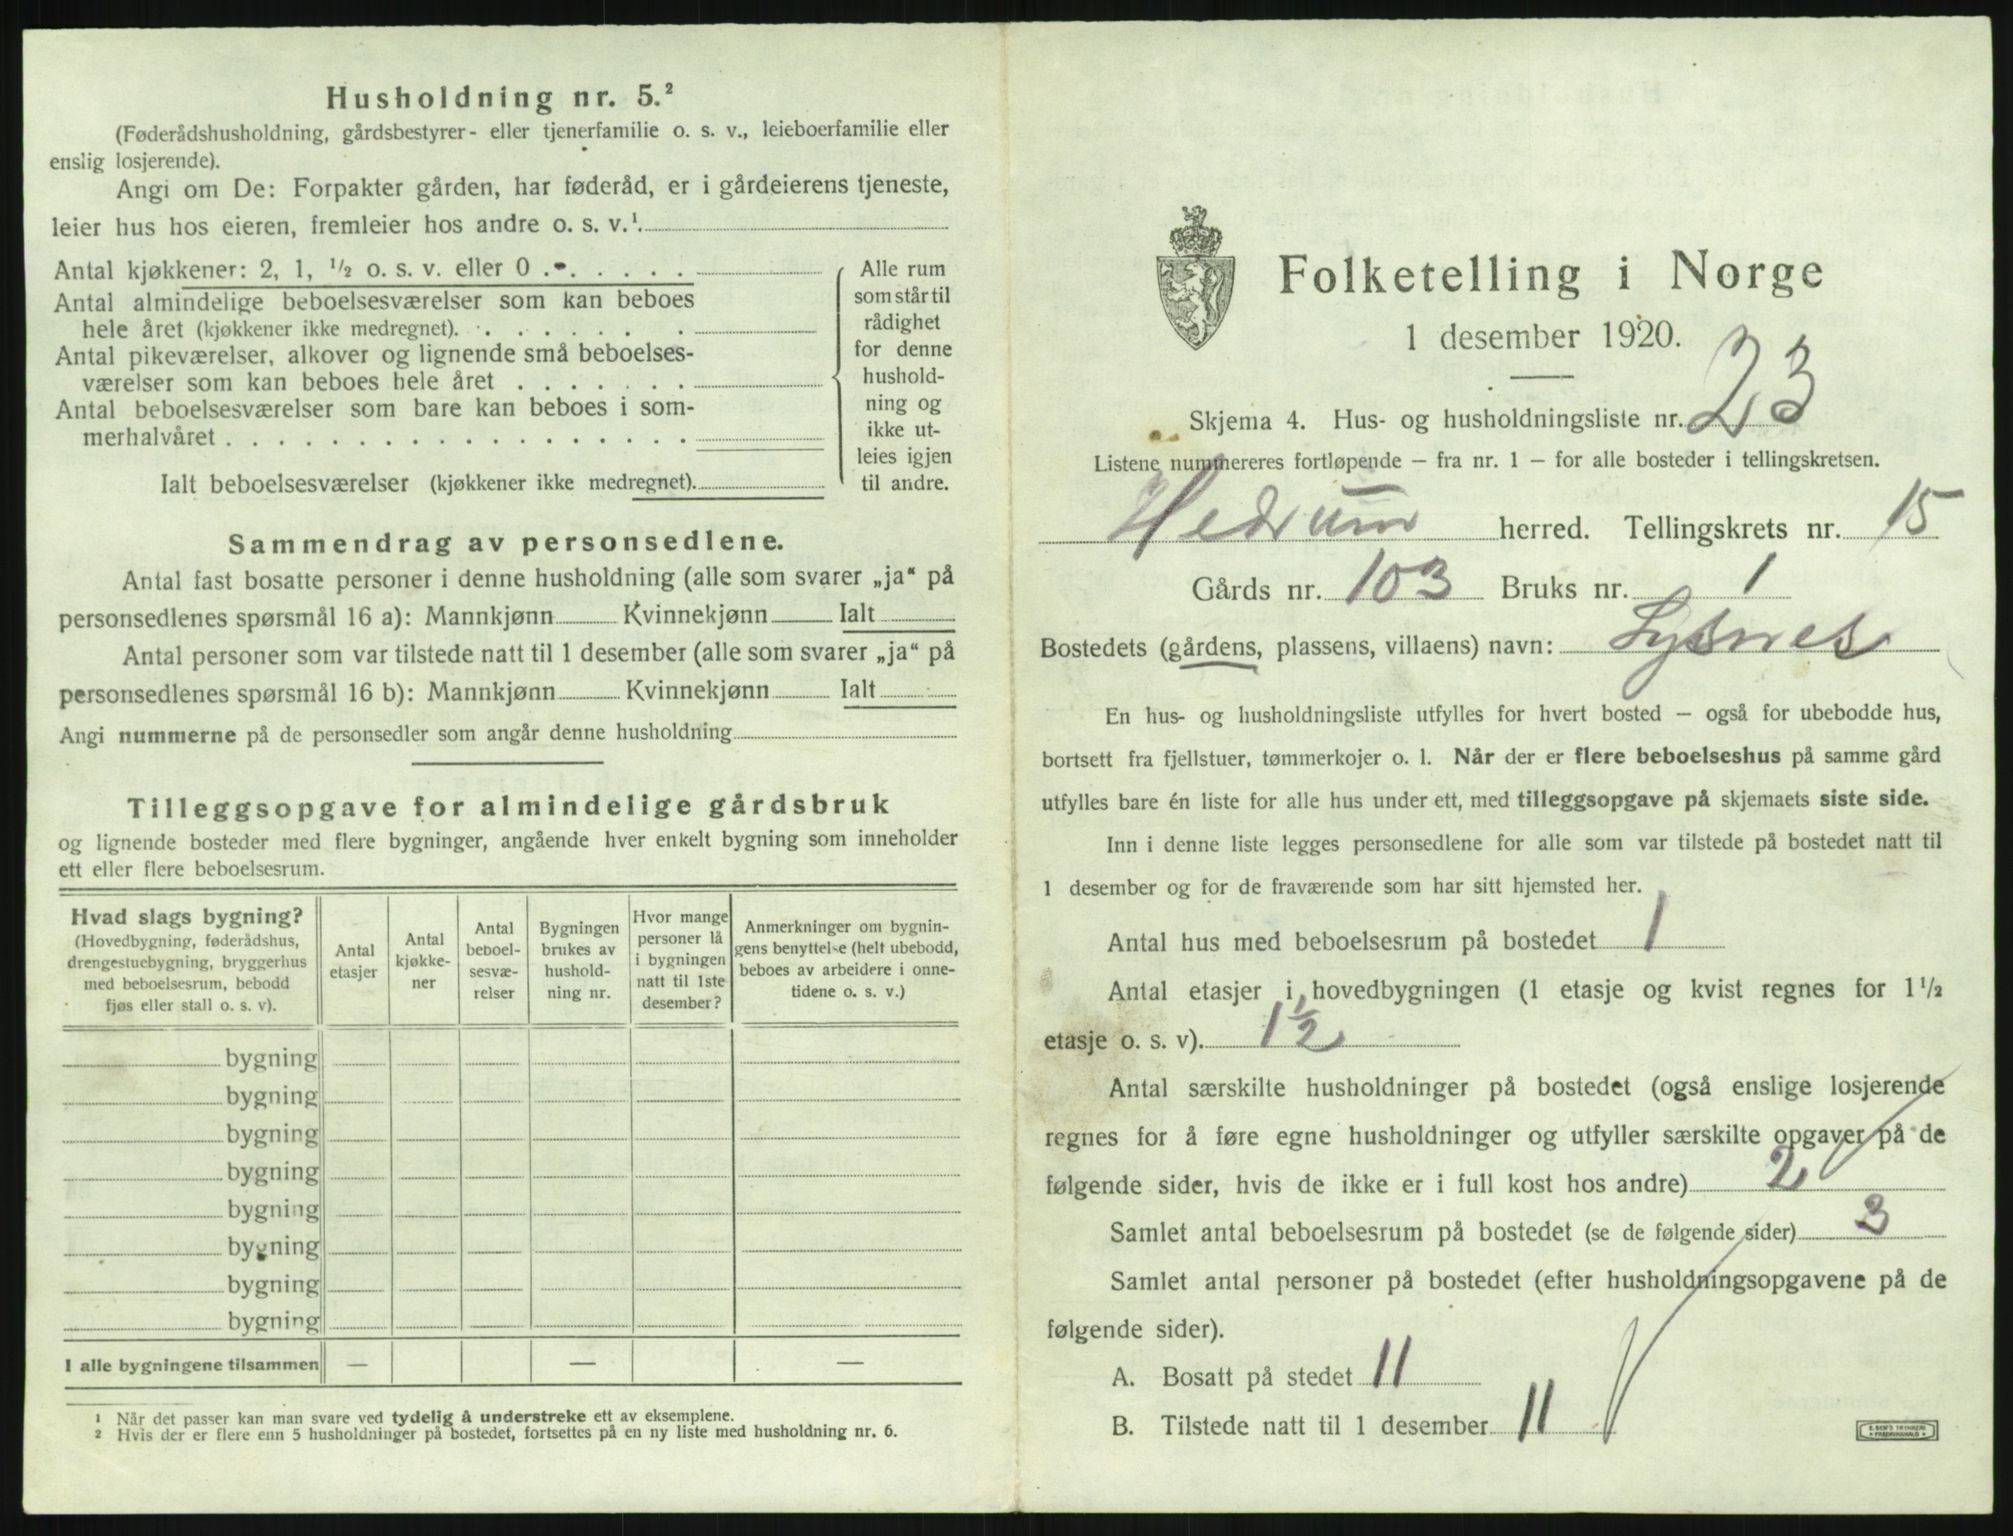 Husholdning nr. 5.²
(Føderådshusholdning, gårdsbestyrer- eller tjenerfamilie o. s. v., leieboerfamilie eller
enslig losjerende).
Angi om De: Forpakter gården, har føderåd, er i gårdeierens tjeneste,
leier hus hos eieren, fremleier hos andre o. s. v.¹.
Antal kjøkkener: 2, 1, ½ o. s. v. eller 0 . . . . . .
Antal almindelige beboelsesværelser som kan beboes
hele året (kjøkkener ikke medregnet). . . . . . . .
Antal pikeværelser, alkover og lignende små beboelses-
værelser som kan beboes hele året . . . . . . .
Antal beboelsesværelser som bare kan beboes i som-
merhalvåret . . . . . . . . . . . . . . . . . .
Ialt beboelsesværelser (kjøkkener ikke medregnet).
Alle rum
som står til
rådighet
for denne
hushold-
ning og
ikke ut-
leies igjen
til andre.
Sammendrag av personsedlene.
Antal fast bosatte personer i denne husholdning (alle som svarer „ja“ på
personsedlenes spørsmål 16 a): Mannkjønn Kvinnekjønn Ialt
Antal personer som var tilstede natt til 1 desember (alle som svarer „ja“ på
personsedlenes spørsmål 16 b): Mannkjønn Kvinnekjønn Ialt
Angi nummerne på de personsedler som angår denne husholdning
Tilleggsopgave for almindelige gårdsbruk
og lignende bosteder med flere bygninger, angående hver enkelt bygning som inneholder
ett eller flere beboelsesrum.
Hvad slags bygning?
(Hovedbygning, føderådshus,
drengestuebygning, bryggerhus
med beboelsesrum, bebodd
fjøs eller stall o. s. v).
Antal
etasjer
Antal
kjøkke-
ner
Antal
beboel-
sesvæ-
relser
Bygningen
brukes av
hushold-
ning nr.
Hvor mange
personer lå
i bygningen
natt til 1ste
desember?
Anmerkninger om bygnin-
gens benyttelse (helt ubebodd,
beboes av arbeidere i onne-
tidene o. s. v.)
bygning
bygning
bygning
bygning
bygning
bygning
bygning
bygning
I alle bygningene tilsammen — — —
¹ Når det passer kan man svare ved tydelig å understreke ett av eksemplene.
² Hvis der er flere enn 5 husholdninger på bostedet, fortsettes på en ny liste med husholdning nr. 6.
Folketelling i Norge
1 desember 1920.
Skjema 4. Hus- og husholdningsliste nr. 23
Listene nummereres fortløpende — fra nr. 1 — for alle bosteder i tellingskretsen.
Hedrum herred. Tellingskrets nr. 15
Gårds nr. 103 Bruks nr. 1
Bostedets (gårdens, plassens, villaens) navn: Lysnes
En hus- og husholdningsliste utfylles for hvert bosted — også for ubebodde hus,
bortsett fra fjellstuer, tømmerkojer o. l. Når der er flere beboelseshus på samme gård
utfylles bare én liste for alle hus under ett, med tilleggsopgave på skjemaets siste side.
Inn i denne liste legges personsedlene for alle som var tilstede på bostedet natt til
1 desember og for de fraværende som har sitt hjemsted her.
Antal hus med beboelsesrum på bostedet 1
Antal etasjer i hovedbygningen (1 etasje og kvist regnes for 1½
etasje o. s. v). 1½
Antal særskilte husholdninger på bostedet (også enslige losjerende
regnes for å føre egne husholdninger og utfyller særskilte opgaver på de
følgende sider, hvis de ikke er i full kost hos andre) 2
Samlet antal beboelsesrum på bostedet (se de følgende sider) 3
Samlet antal personer på bostedet (efter husholdningsopgavene på de
følgende sider).
A. Bosatt på stedet 11
B. Tilstede natt til 1 desember 11